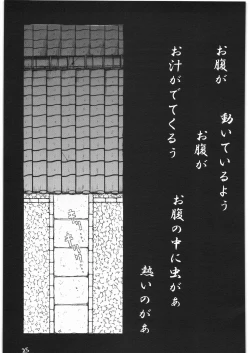 お腹が
動いているよう
お腹が
お汁がでてくるぅ
お腹の中に虫がぁ
熱いのがぁ
25